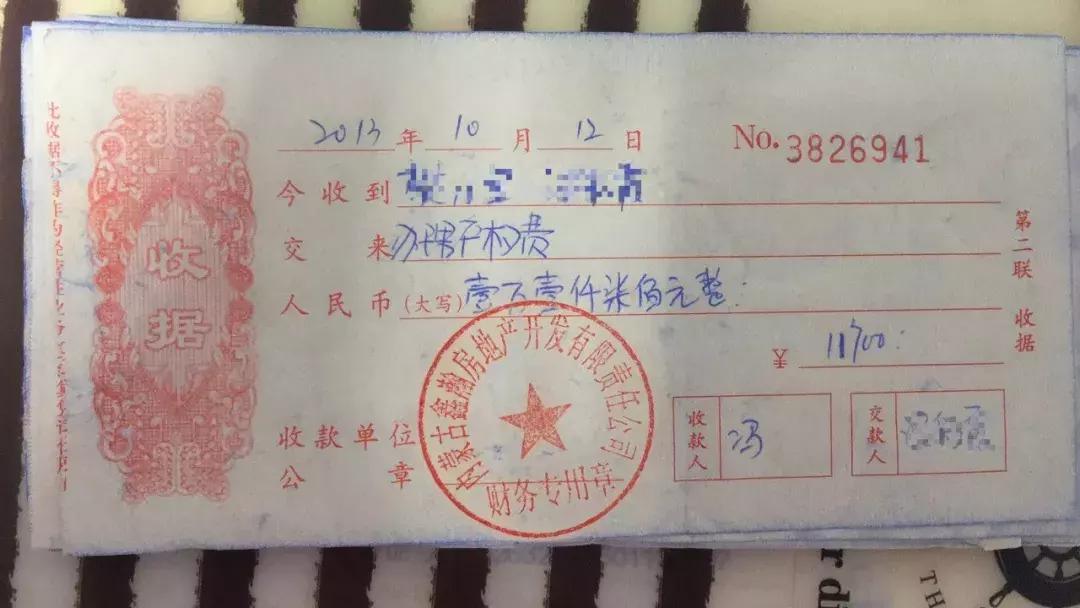 2013年10月12日
No. 3826941
今收到
交来 办理产权费
人民币(大写) 壹万壹仟柒佰元整
¥ 11700
收款单位公章
收款人 冯
交款人
第二联 收据
收据
内蒙古鑫瀚房地产开发有限责任公司
财务专用章
TH